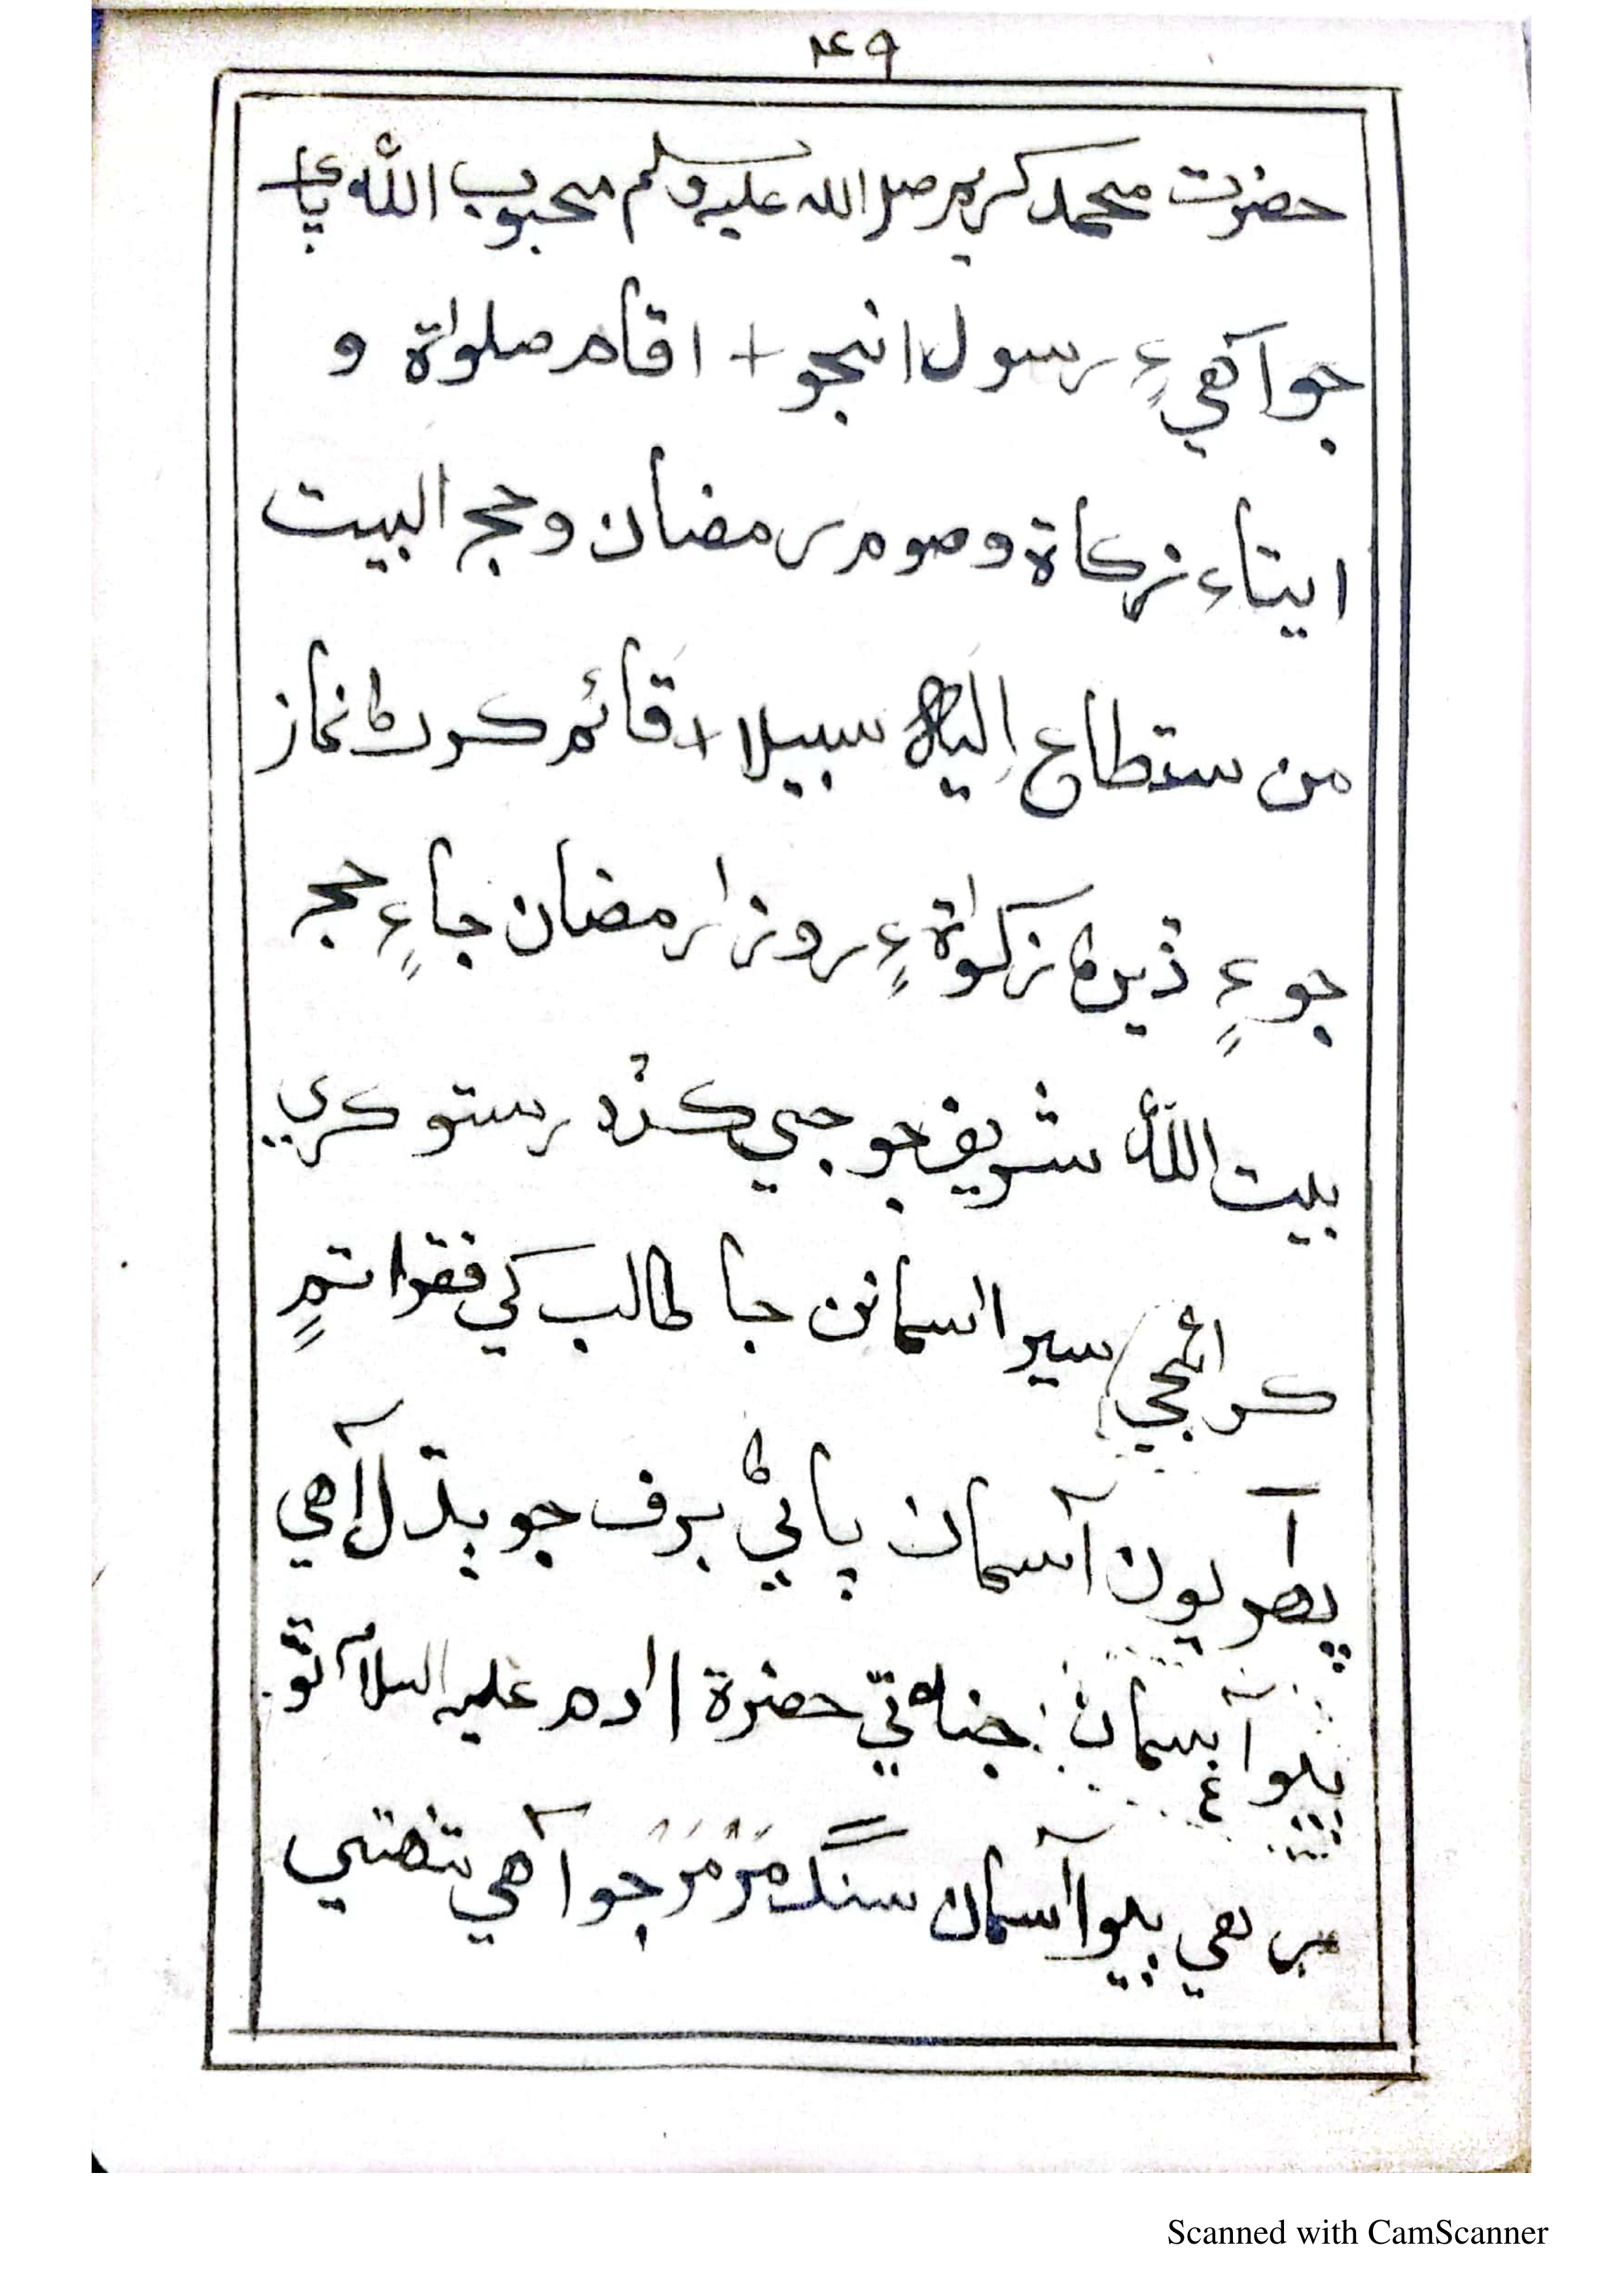 ۴۹
حضرت محمد كريم صلي الله عليه وسلم محبوب الله پاء
جو آهي ۽ رسول انجو + اقام صلواة و
ايتاء زكاة وصوم رمضان وحج البيت
من ستطاع إليه سبيلا + قائم كرڻ نماز
جو ۽ ڏيڻ زكواة ۽ روزا رمضان جا ۽ حج
بيت الله شريف جو جي كڏه رستو كري
سير اسمانن جا طالب كي فقرا تم
پهريون آسمان پاڻي برف جو ٻڌل آهي
ٻيو آسمان جنا تي حضرة ادم عليه السلا
هي ٻيو آسمان سنگ مَرْمَرْ جو آهي
Scanned with CamScanner